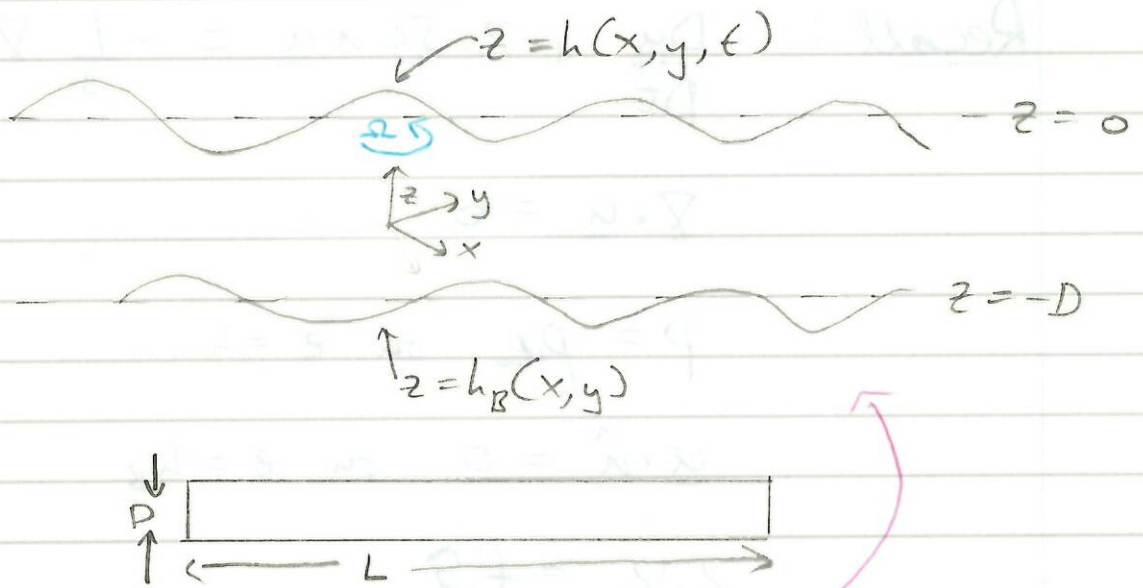 z = h(x, y, t)
z = 0
Ω
z y
x
z = -D
z = h_B(x, y)
D
L